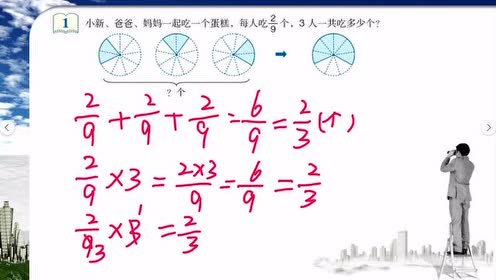 1 小新、爸爸、妈妈一起吃一个蛋糕,每人吃2/9个,3人一共吃多少个?
?个
2/9+2/9+2/9=6/9=2/3(个)
2/9×3=2×3/9=6/9=2/3
2/9 3×3 1=2/3